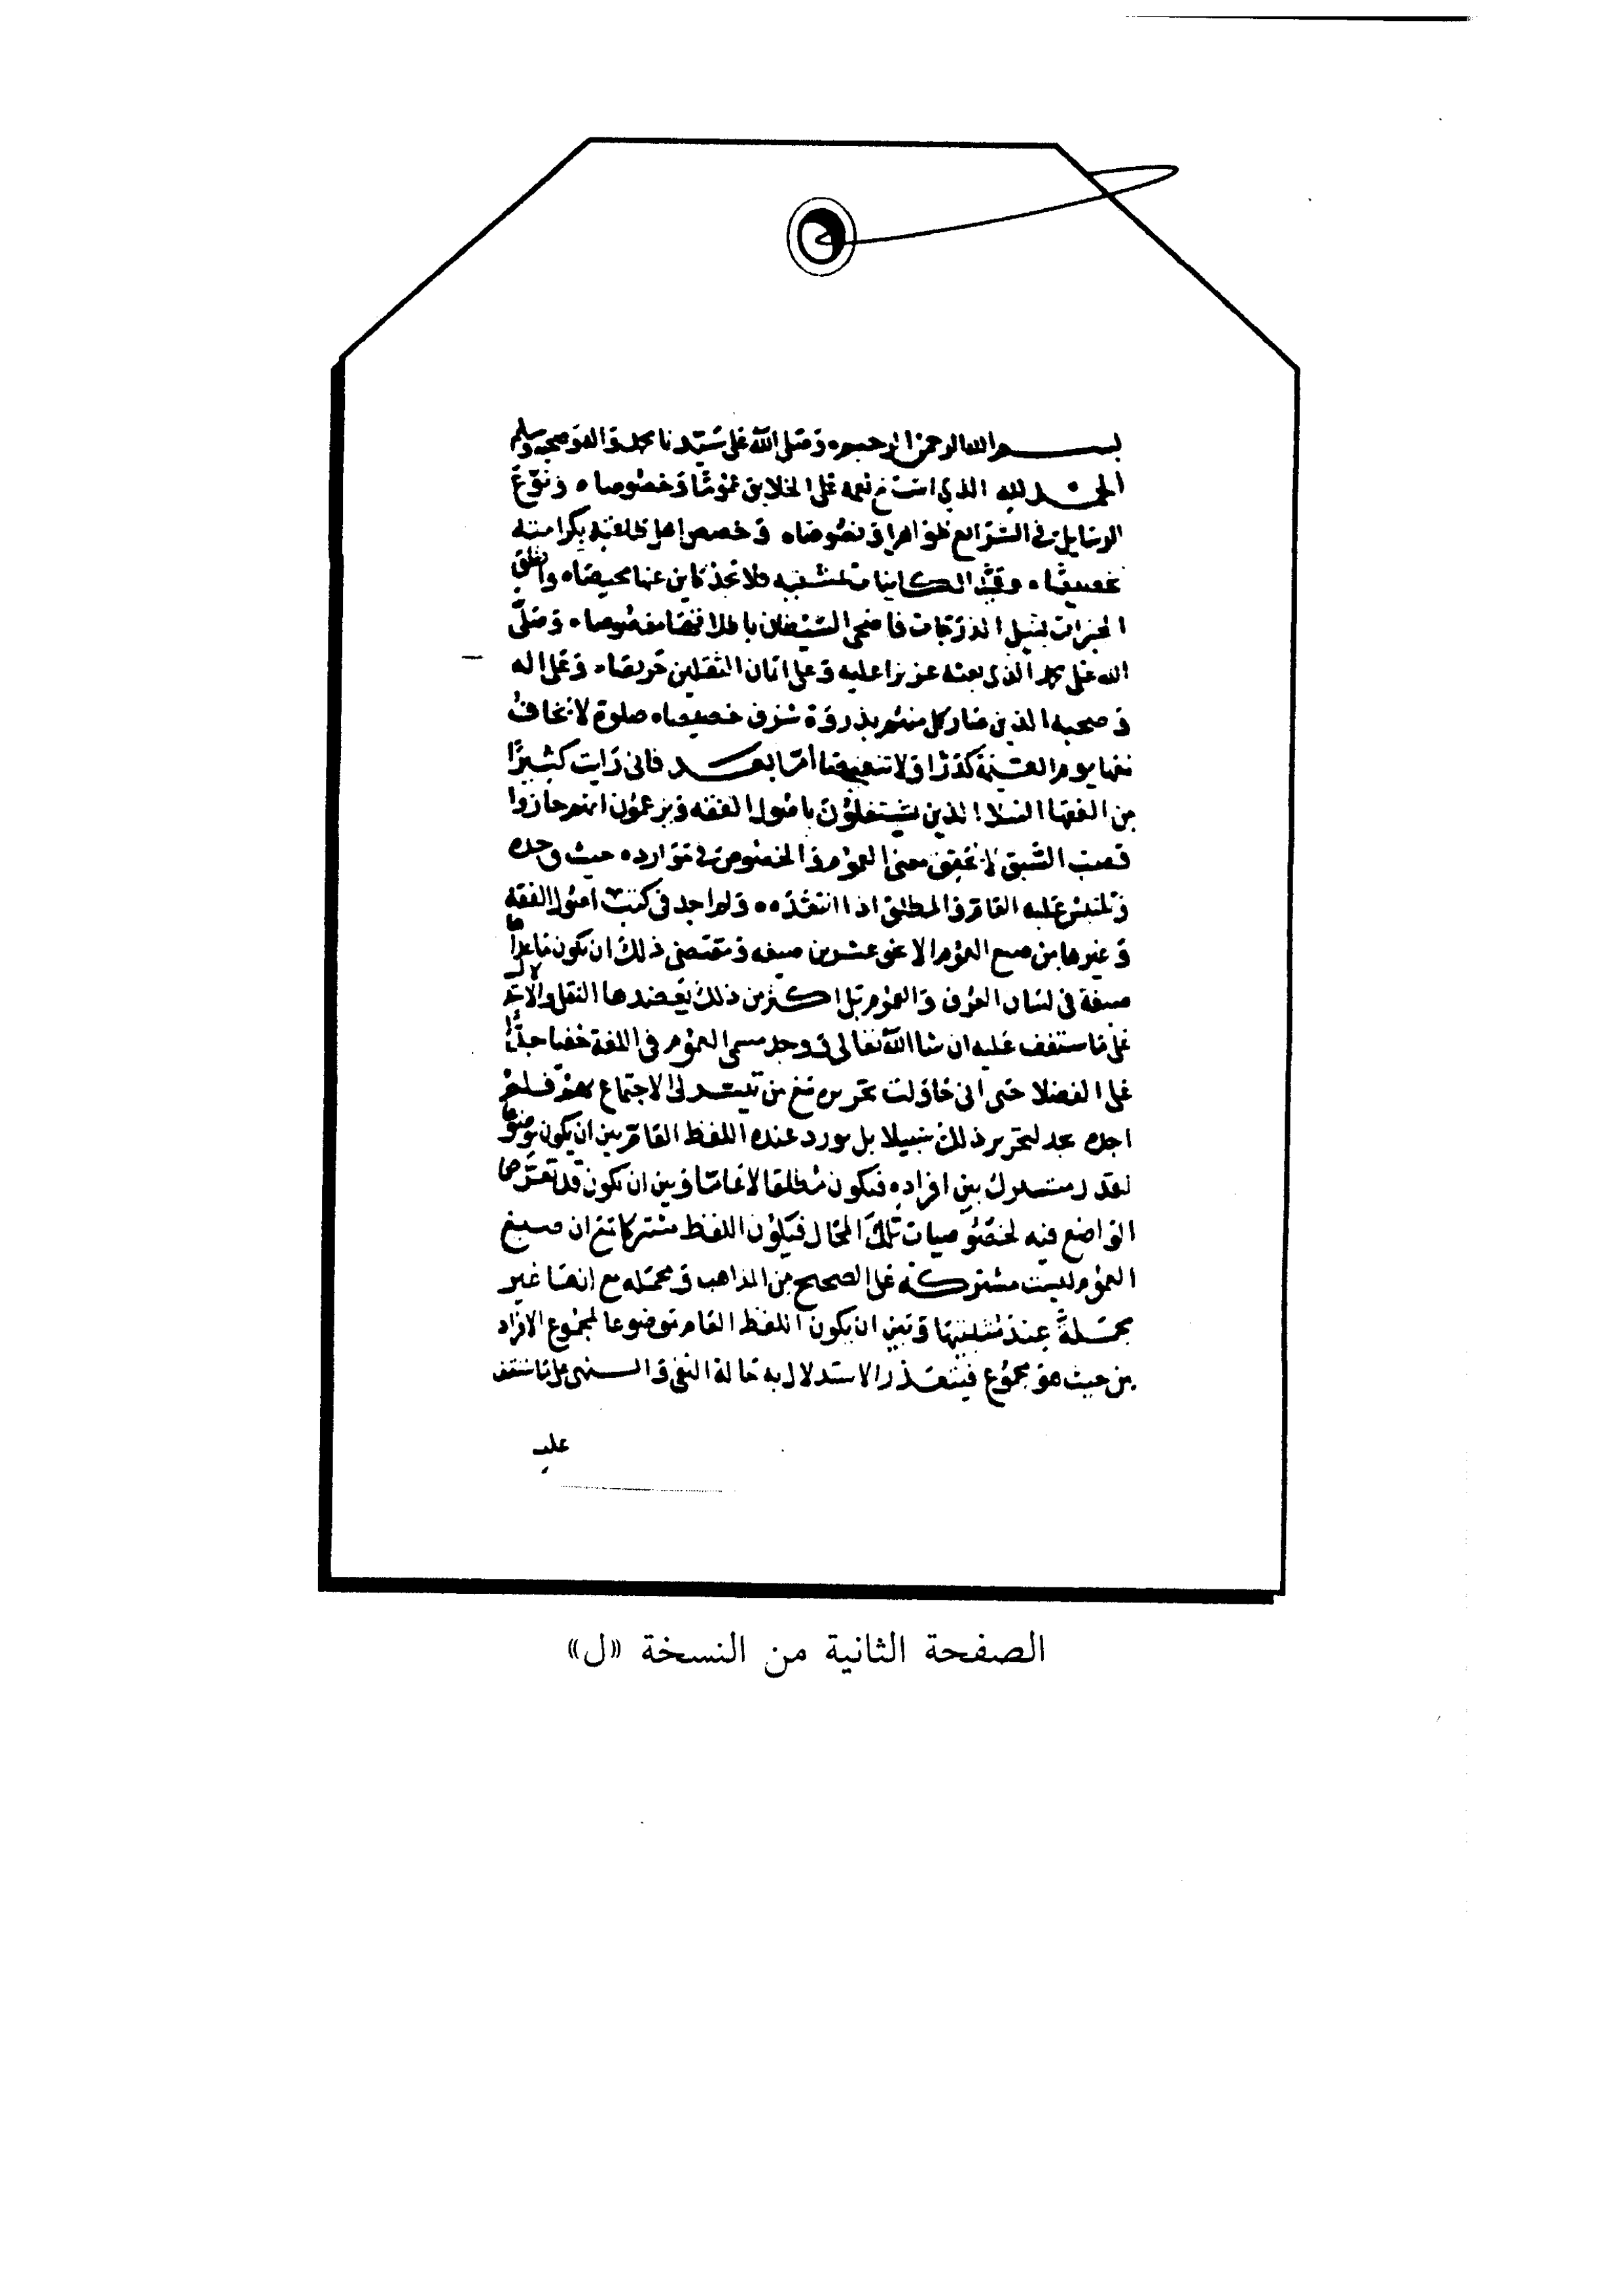 بسم الله الرحمن الرحيم وصلى الله على سيدنا محمد واله وصحبه وسلم
الحمد لله الذي اسبغ نعمه على الخلايق عموما وخصوصا ونوع
الوسايل في الشرايع ظواهرا ونصوصا وخصص اهل طاعته بكرامته
تخصيصا وقيد الكاينات بمشيئته فلا تجد كاين عنها محيصا واطلق
الخيرات لنيل الدرجات فاضحى الشيطان باطلاقها مغصوصا وصلى
الله على محمد الذي بعثه عزيزا عليه وعلى امان الثقلين حريصا وعلى اله
وصحبه الذين صار كل منهم بذروة شرف خصيصا صلوة لا نخاف
معها يوم القيمة كدرا ولا تنغيصا اما بعد فاني رايت كثيرا
من الفقها النبلا الذين يشتغلون باصول الفقه ويزعمون انهم حازوا
قصب السبق لا تحقق معنى العموم والخصوص في موارده حيث وجده
ويلتبس عليه العام والمطلق اذا انتقده ولم اجد في كتب اصول الفقه
وغيرها من صيغ العموم الا نحو عشرين صيغه ومقتضى ذلك ان يكون ما عداها
صيغة في لسان العرف والعموم بل اكثر من ذلك يعضدها النقل والاستدلال
على ما ستقف عليه ان شا الله تعالى ووجد مسمى العموم في اللغة خفيا جدا
على الفضلا حتى اني حاولت تحريره مع من تيسر لي الاجتماع بهم فلم
اجده يجد لتحرير ذلك سبيلا بل يورد عنده اللفظ العام بين ان يكون موضوعا
لقدر مشترك بين افراده فيكون مطلقا لا عاما وبين ان يكون قد تعرض
الواضع فيه لخصوصيات تلك المحال فيكون اللفظ مشتركا مع ان صيغ
العموم ليست مشتركة على الصحيح من المذاهب ومجمله مع انها غير
مجملة عند مثبتيها وبين ان يكون اللفظ العام موضوعا لمجموع الافراد
من حيث هو مجموع فيتعذر الاستدلال به حالة النفي والنهي على ما ستقف
عليه
الصفحة الثانية من النسخة «ل»